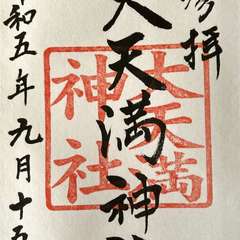 奉拝
大天満神社
大天満
神社
令和五年九月十五